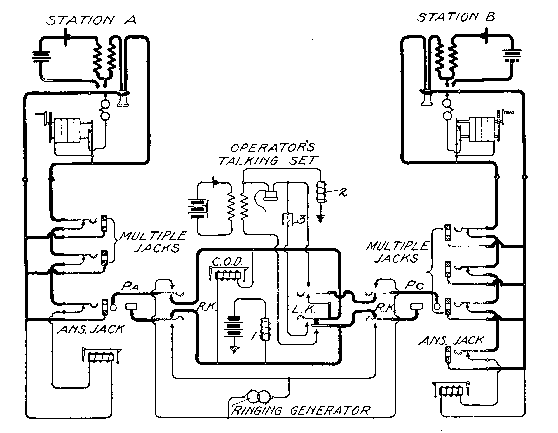 STATION A
STATION B
OPERATOR'S
TALKING SET
2
3
MULTIPLE
JACKS
MULTIPLE
JACKS
C.O.D.
PA
PC
R.K.
L.K.
R.K.
1
ANS. JACK
ANS. JACK
RINGING GENERATOR